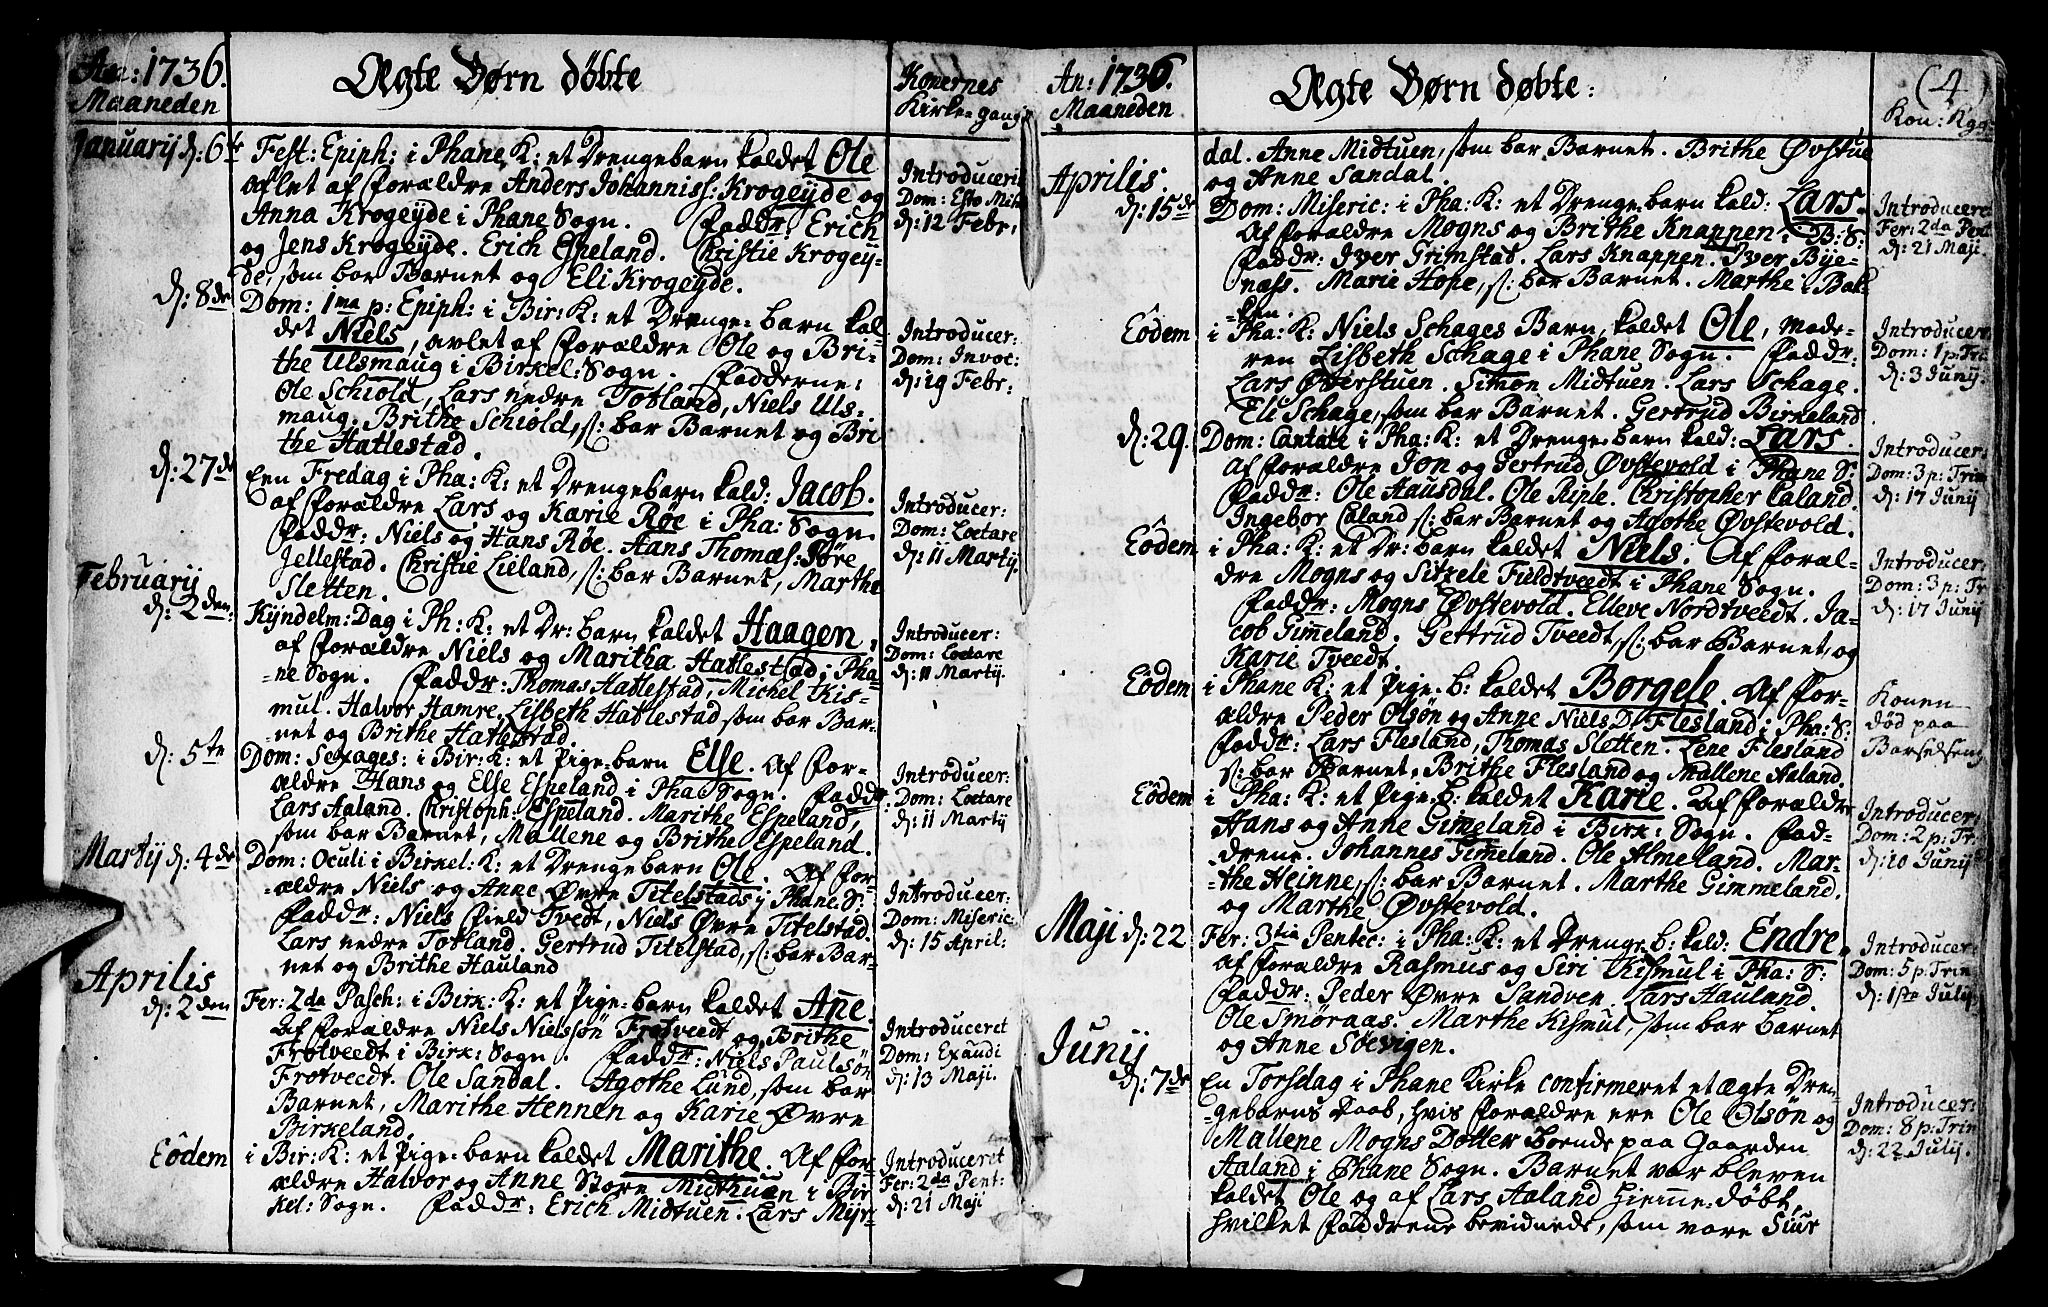 Ano: 1736.
Maaneden
Ægte Børn døbte
Konernes
Kirke-gang
Januarij d: 6te Fest: Epiph: i Phane K: et Drengebarn kaldet Ole
aflet af Forældre Anders Johanniss: Krogeÿde og
Anna Krogeÿde i Phane Sogn. Faddr: Erich
og Jens Krogeÿde. Erich Espeland. Christie Krogeÿ-
de, som bar Barnet og Eli Krogeÿde.
Introduceret
Dom: Esto Mihi
d: 12 Febr:
d: 8de Dom: 1ma p: Epiph: i Bir: K: et Drenge-barn kal-
det Niels, avlet af Forældre Ole og Bri-
the Ulsmaug i Birkel: Sogn. Fadderne:
Ole Schiold, Lars nedre Totland, Niels Uls-
maug. Brithe Schiold, s: bar Barnet og Bri-
the Hatlestad.
Introducer:
Dom: Invoc:
d: 19 Febr:
d: 27de Een Fredag i Pha: K: et Drengebarn kald: Jacob.
af Forældre Lars og Karie Røe i Pha: Sogn.
Faddr: Niels og Hans Røe. Hans Thomæs: Søre
Jellestad. Christie Lieland, s: bar Barnet, Marthe
Sletten.
Introducer:
Dom: Loetare
d: 11 Martij.
Februarij
d: 2den: Kyndelm: Dag i Ph: K: et Dr: barn kaldet Haagen,
af Forældre Niels og Maritha Hatlestad i Pha-
ne Sogn. Faddr: Thomas Hatlestad, Michel Kis-
mul. Halvor Hamre. Lisbeth Hatlestad som bar Bar-
net og Brithe Hatlestad.
Introducer:
Dom: Loetare
d: 11 Martij.
d: 5te Dom: Sexages: i Bir: K: et Pige-barn Else. Af For-
ældre Hans og Else Espeland i Pha: Sogn. Faddr:
Lars Aaland. Christoph: Espeland. Marithe Espeland,
som bar Barnet, Mallene og Brithe Espeland.
Introducer:
Dom: Loetare
d: 11 Martij
Martij d: 4de Dom: Oculi i Birkel: K: et Drengebarn Ole. Af For-
ældre Niels og Anne Øvre Titelstad i Phane S:
Faddr: Niels Field Tvedt, Niels Øvre Titelstad.
Lars nedre Totland. Gertrud Titelstad, s: bar Bar-
net og Brithe Hauland
Introducer:
Dom: Miseric:
d: 15 April:
Aprilis
d: 2den Fer: 2da Pasch: i Birk: K: et Pige-barn kaldet Añe.
Af Forældre Niels Nielssøn Frotveedt og Brithe
Frotveedt i Birk: Sogn. Faddr: Niels Paulsøn
Frotveedt. Ole Sandal. Agothe Lund, som bar
Barnet, Marithe Hennen og Karie Øvre
Birkeland.
Introduceret
Dom: Exaudi
d: 13 Maji.
Eôdem i Bir: K: et Pige-barn kaldet Marithe. Af For-
ældre Halvor og Anne Store Midtuen i Bir-
kel: Sogn. Faddr: Erich Midtuen. Lars Myr-
Introduceret
Fer: 2da Pent:
d: 21 Maji
An: 1736.
Maaneden
Ægte Børn døbte:
(4)
Kon: Kgg:
dal. Anne Midtuen, som bar Barnet. Brithe Øvstue
og Anne Sandal.
Aprilis:
d: 15de Dom: Miseric: i Pha: K: et Drenge-barn kald: Lars.
Af Forældre Mogns og Brithe Knappen i B: S:
Faddr: Iver Grimstad. Lars Knappen. Iver Bye-
næss. Marie Hope, s: bar Barnet. Marthe i Bak-
ken.
Introduceret
Fer: 2da Pent
d: 21 Maji.
Eôdem i Pha: K: Niels Schages Barn, kaldet Ole, mode-
ren Lisbeth Schage i Phane Sogn. Faddr:
Lars Øverstuen. Simon Midtuen. Lars Schage.
Eli Schage, som bar Barnet. Gertrud Birkeland
Introducer:
Dom: 1 p: Trin
d: 3 Junij.
d: 29. Dom: Cantate i Pha: K: et Drenge-barn kald: Lars.
af Forældre Jon og Gertrud Øvstevold i Phane S:
Faddr: Ole Hausdal. Ole Riple. Christopher Caland.
Ingebor Caland s: bar Barnet og Agothe Øvstevold.
Introducer:
Dom: 3 p: Trin
d: 17 Junij
Eôdem i Pha: K: et Dr: barn kaldet Niels. Af Foræl-
dre Mogns og Sitzele Fieldtveedt i Phane Sogn.
Faddr: Mogns Øvstevold. Elleve Nordtveedt. Ja-
cob Gim̃eland. Gertrud Tveedt, s: bar Barnet, og
Karie Tveedt.
Introducer:
Dom: 3 p: Tr
d: 17 Junij
Eôdem i Phane K: et Pige-b: kaldet Borgele. Af For-
ældre Peder Olsøn og Anne Niels D: Flesland i Pha: S:
Faddr: Lars Flesland, Thomas Sletten. Lene Flesland
s: bar Barnet, Brithe Flesland og Mallene Aaland.
Konen
død paa
Barselseng
Eôdem i Pha: K: et Pige-b: kaldet Karie. Af Forældre
Hans og Anne Gim̃eland i Birk: Sogn. Fad-
drene. Johannes Gim̃eland. Ole Almeland. Mar-
the Heinne, s: bar Barnet. Marthe Gimmeland.
og Marthe Øvstevold.
Introducer:
Dom: 2 p: Tr:
d: 10 Junij
Maji d: 22 Fer: 3tia Pentec: i Pha: K: et Drenge-b: kald: Endre.
af Forældre Rasmus og Siri Kismul i Pha: S:
Faddr: Peder Øvre Sandven. Lars Hauland.
Ole Smøraas. Marthe Kismul, som bar Barnet
og Anne Søevigen.
Introducer:
Dom: 5 p: Trin
d: 1ste Julij
Junij
d: 7de En Torsdag i Phane Kirke confirmeret et ægte Dren-
gebarns Daab, hvis Forældre ere Ole Olsøn og
Mallene Mogns Dotter boende paa Gaarden
Aaland i Phane Sogn. Barnet var bleven
kaldet Ole og af Lars Aaland hiem̃e-døbt,
hvilket Faddrene bevidnede, som vare Siur
Introducer:
Dom: 8 p: Trin
d: 22 Julij.